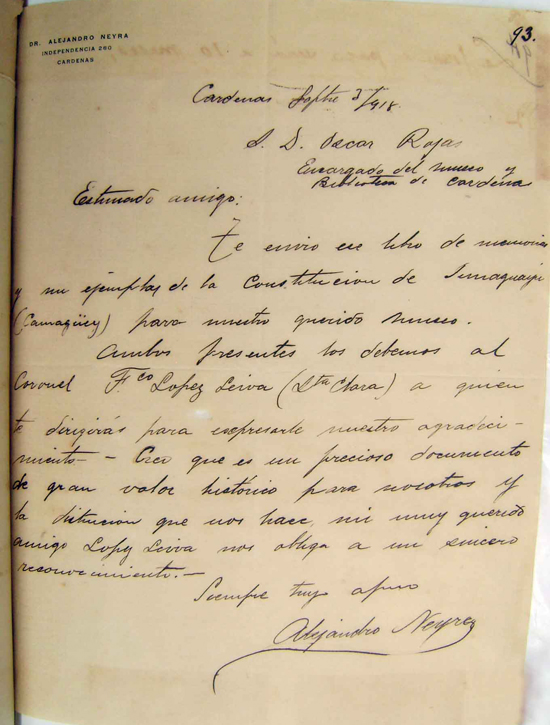 93.
DR. ALEJANDRO NEYRA
INDEPENDENCIA 260
CARDENAS
Cardenas Septre 3/918.
S. D. Oscar Rojas
Encargado del museo y
Biblioteca de Cardenas
Estimado amigo:
Te envio ese libro de memorias
y un ejemplar de la Constitucion de Jimaguayú
(Camagüey) para nuestro querido museo.
Ambos presentes los debemos al
Coronel F.co Lopez Leiva (Sta Clara) a quien
te dirigirás para expresarle nuestro agradeci-
miento - Creo que es un precioso documento
de gran valor histórico para nosotros y
la distincion que nos hace, mi muy querido
amigo Lopez Leiva nos obliga a un sincero
reconocimiento.-
Siempre tuyo afmo
Alejandro Neyra